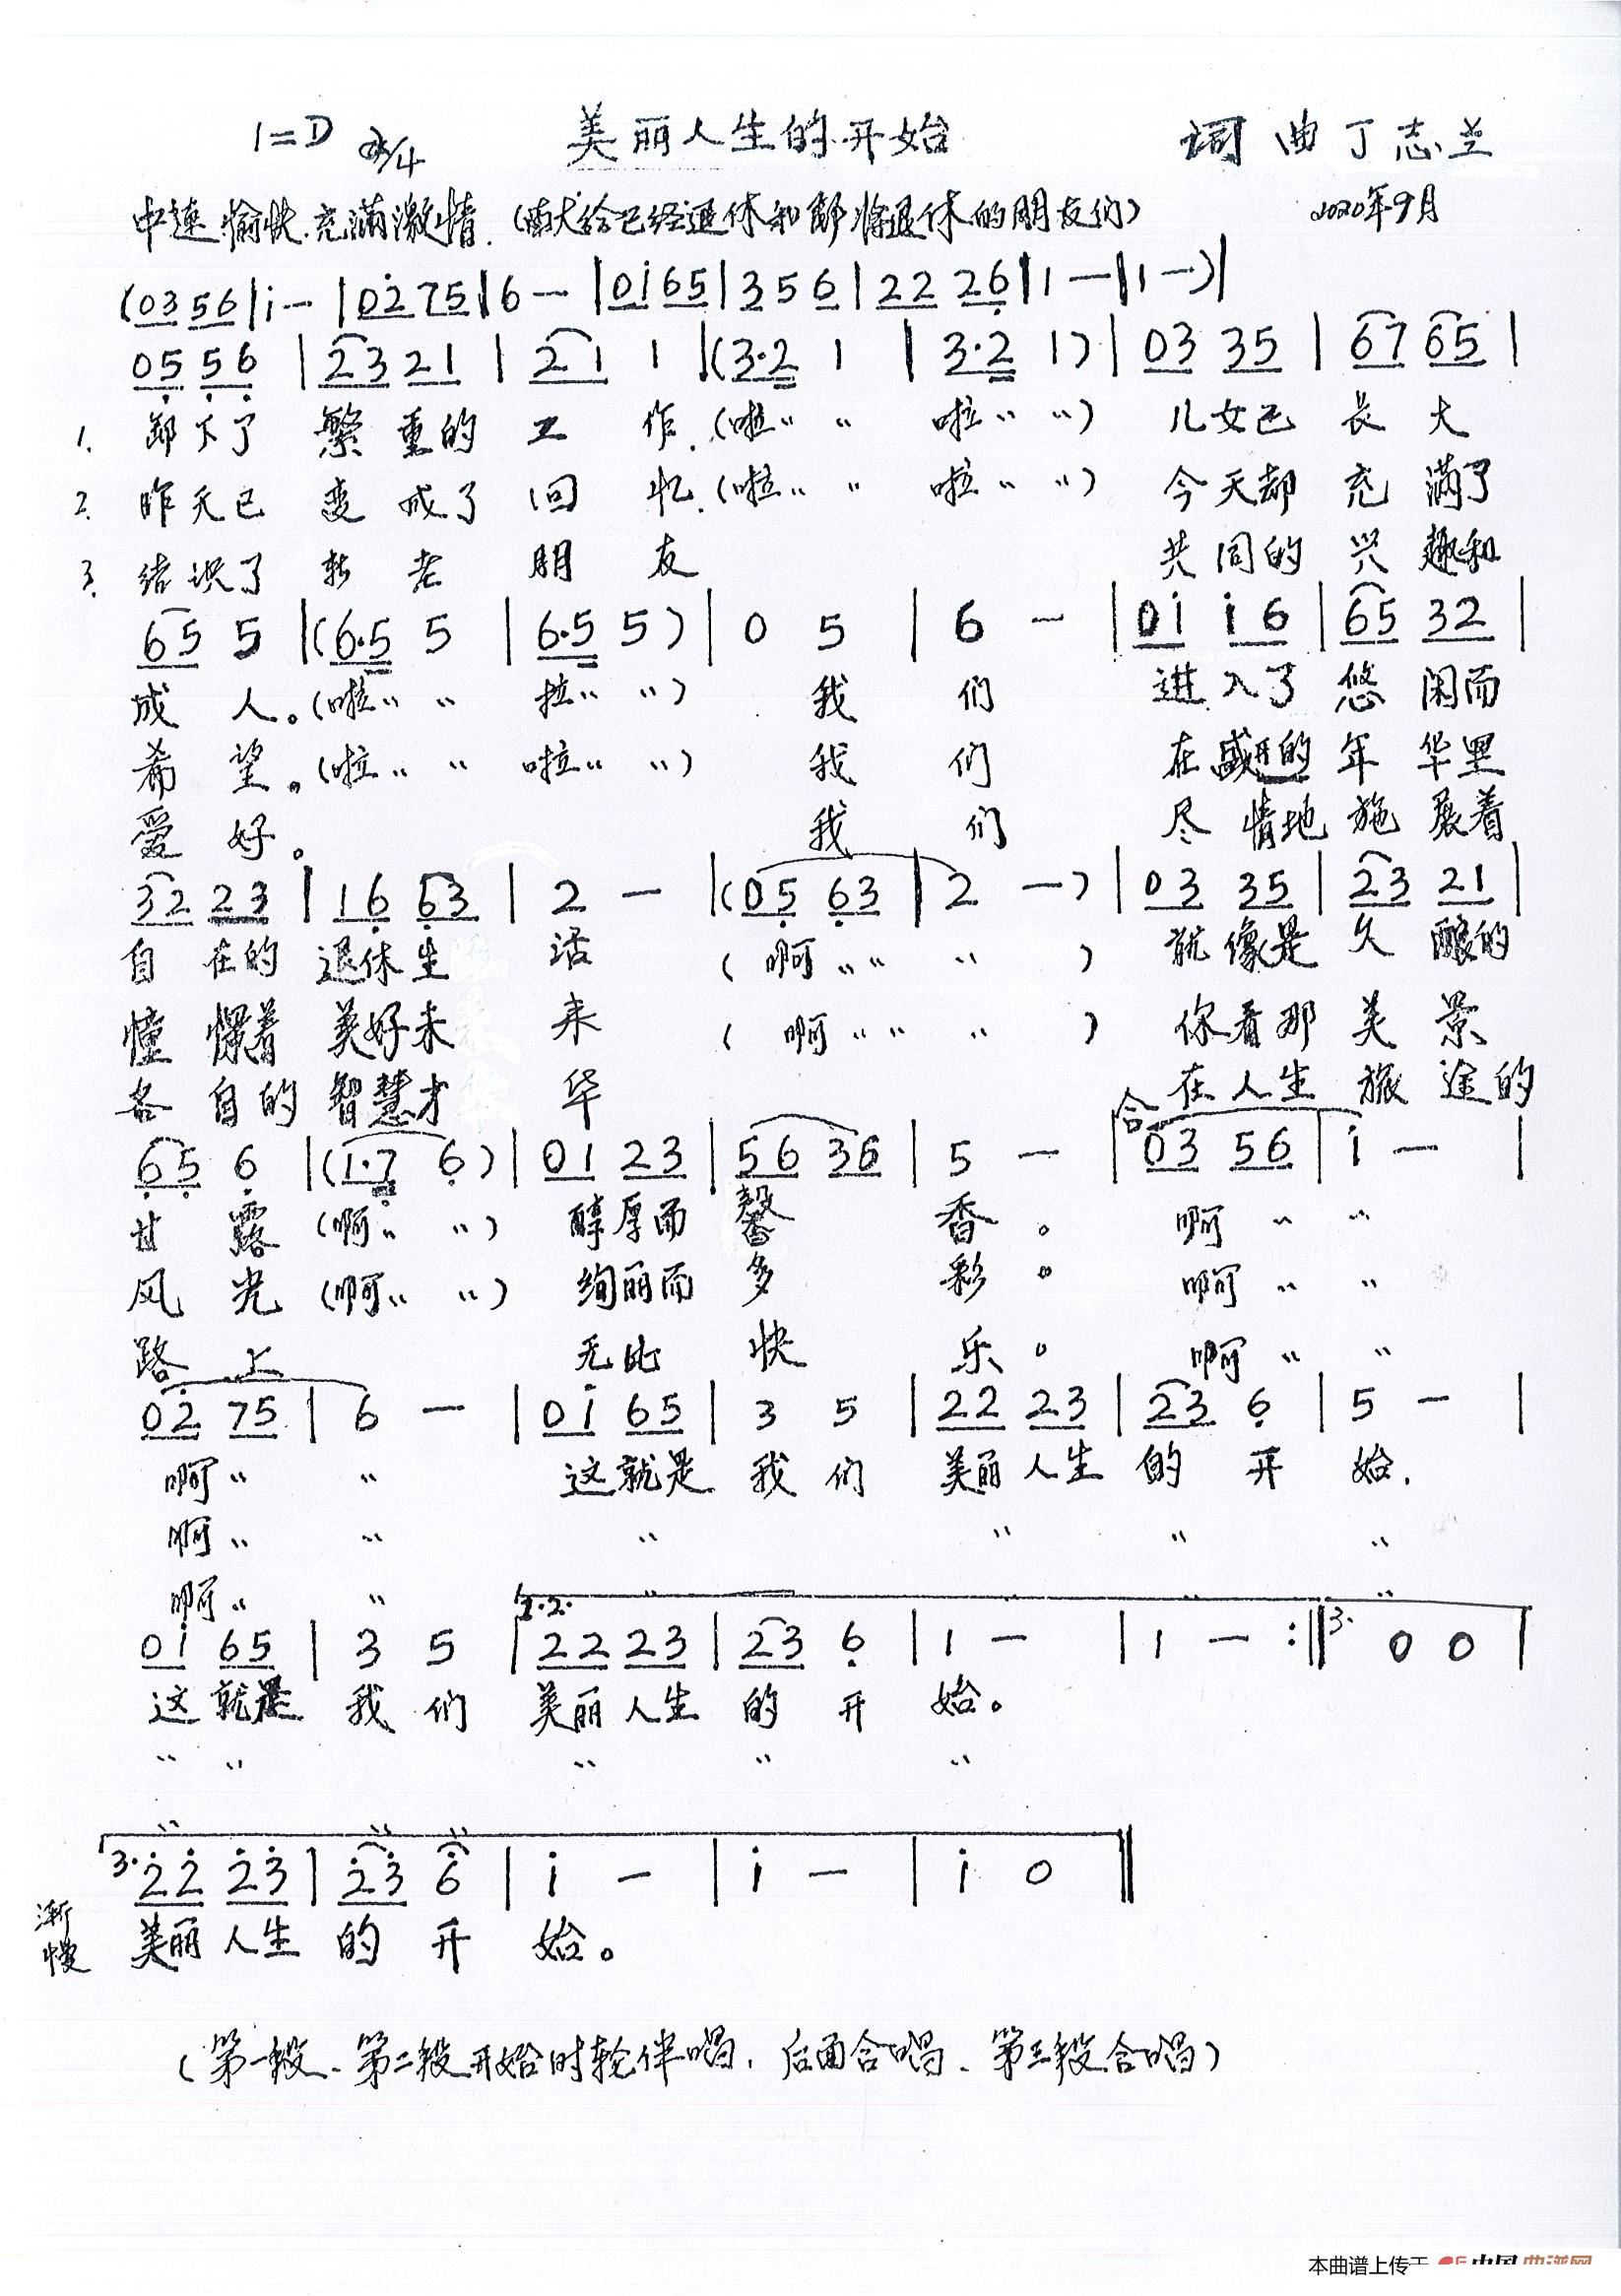 1=D 2/4 美丽人生的开始 词曲丁志兰
中速 愉快.充满激情.(献给已经退休和即将退休的朋友们) 2020年9月
(03 56|i̇ —|02̇ 75|6 —|0i̇ 65|3 5 6|22 26̣|1 —|1 —)|
05̣ 5̣6̣|23 21|21 1|(3·2 1|3·2 1)|03 35|67 65|
1. 卸下了 繁重的 工作.(啦〃〃 啦〃〃) 儿女已 长大
2. 昨天已 变成了 回忆.(啦〃〃 啦〃〃) 今天却 充满了
3. 结识了 新老 朋友 共同的 兴趣和
65 5|(6·5 5|6·5 5)|0 5|6 —|0i̇ i̇6|65 32|
成人。(啦〃〃 拉〃〃) 我们 进入了 悠闲而
希望。(啦〃〃 啦〃〃) 我们 在盛开的 年华里
爱好。 我们 尽情地 施展着
32 23|16̣ 6̣3|2 —|(05̣ 6̣3|2 —)|03 35|23 21|
自在的 退休生 活 (啊〃〃 〃) 就像是 久酿的
憧憬着 美好未 来 (啊〃〃 〃) 你看那 美景
各自的 智慧才 华 在人生 旅途的
合
6̣5̣ 6̣|(1·7̣ 6̣)|01 23|56 36|5 —|03 56|i̇ —|
甘露 (啊〃 〃) 醇厚而 馨 香。 啊〃 〃
风光 (啊〃 〃) 绚丽而 多 彩。 啊〃 〃
路上 无比 快 乐。 啊〃 〃
02̇ 75|6 —|0i̇ 65|3 5|22 23|23 6̣|5 —|
啊〃 〃 这就是 我们 美丽人生 的开 始.
啊〃 〃 〃 〃 〃 〃
啊〃 〃 〃 〃 〃
1.2. 3.
0i̇ 65|3 5|22 23|23 6̣|1 —|1 — :‖0 0|
这就是 我们 美丽人生 的开 始。
〃 〃 〃 〃 〃
〃 〃 〃
3. 2̇2̇ 2̇3̇|2̇3̇ 6̇|i̇ —|i̇ —|i̇ 0‖
渐慢 美丽人生 的开 始。
(第一段、第二段开始时轮伴唱，后面合唱、第三段合唱)
本曲谱上传于 中国曲谱网